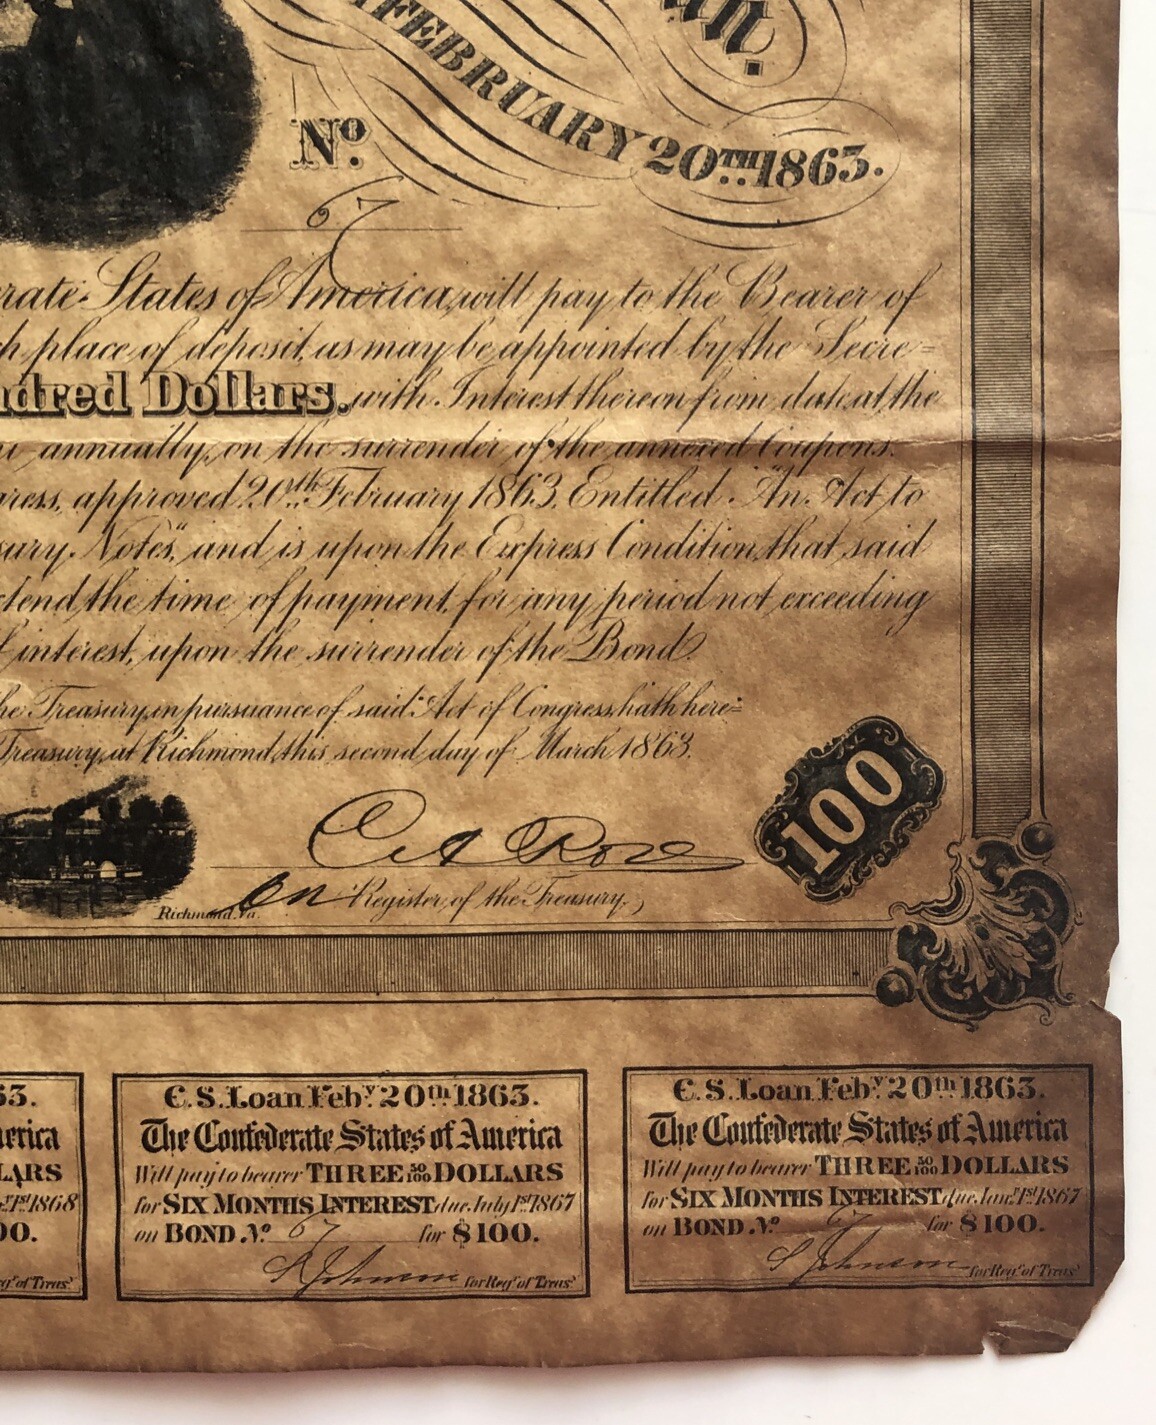 FEBRUARY 20TH 1863.
No.
67
States of America, will pay to the Bearer of
place of deposit, as may be appointed by the Secre=
Dollars. with Interest thereon from date, at the
annually, on the surrender of the annexed Coupons.
approved 20th February 1863, Entitled "An Act to
Notes," and is upon the Express Condition, that said
the time of payment, for any period not exceeding
interest, upon the surrender of the Bond.
Treasury, in pursuance of said Act of Congress, hath here=
Treasury, at Richmond, this second day of March 1863.
100
C A Rose
Register of the Treasury,
Richmond, Va.
C. S. Loan Feby. 20th 1863.
The Confederate States of America
Will pay to bearer THREE 50/100 DOLLARS
for SIX MONTHS INTEREST due July 1st 1867
on BOND No. 67 for $100.
S Johnson for Regr. of Treasy.
C. S. Loan Feby. 20th 1863.
The Confederate States of America
Will pay to bearer THREE 50/100 DOLLARS
for SIX MONTHS INTEREST due Jany. 1st 1867
on BOND No. 67 for $100.
S Johnson for Regr. of Treasy.